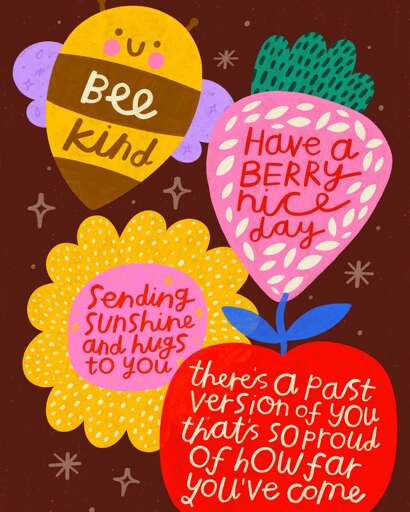 Bee
kind
Have a
BERRY
nice
day
Sending
sunshine
and hugs
to you
there's a past
version of you
that's so proud
of how far
you've come